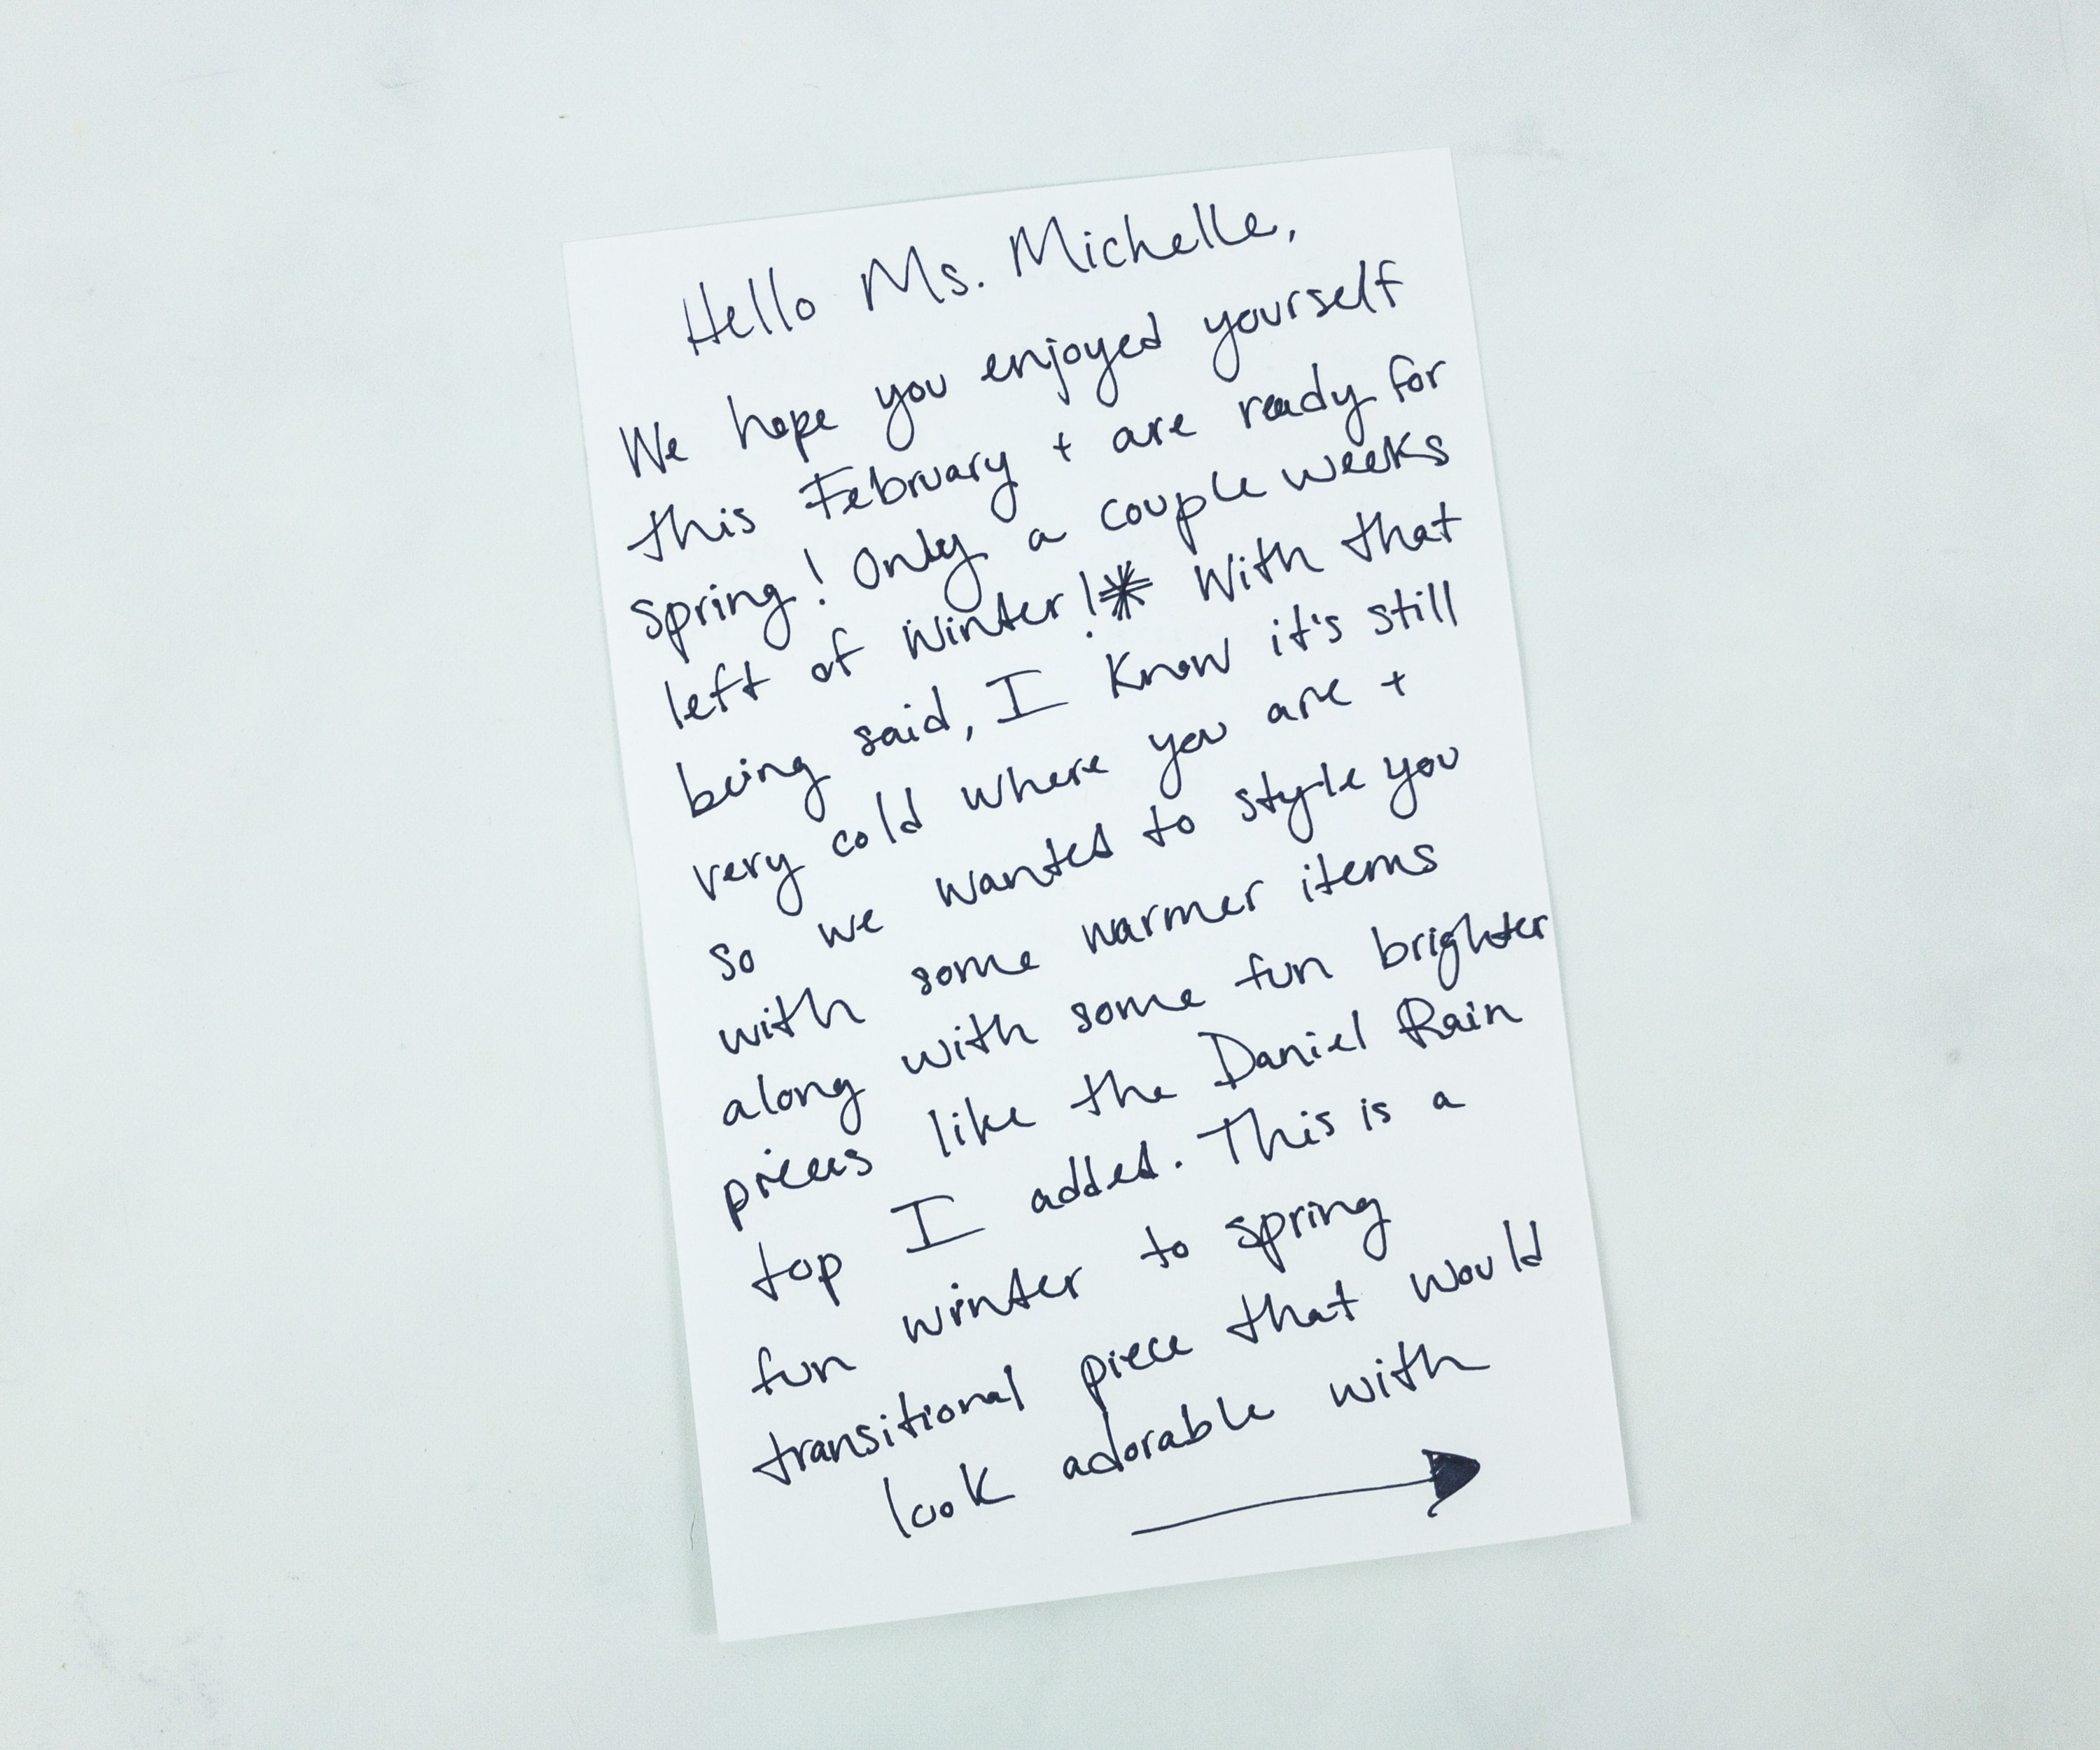 Hello Ms. Michelle,
We hope you enjoyed yourself
this February + are ready for
spring! Only a couple weeks
left of winter!* With that
being said, I know it's still
very cold where you are +
so we wanted to style you
with some warmer items
along with some fun brighter
pieces like the Daniel Rain
top I added. This is a
fun winter to spring
transitional piece that would
look adorable with